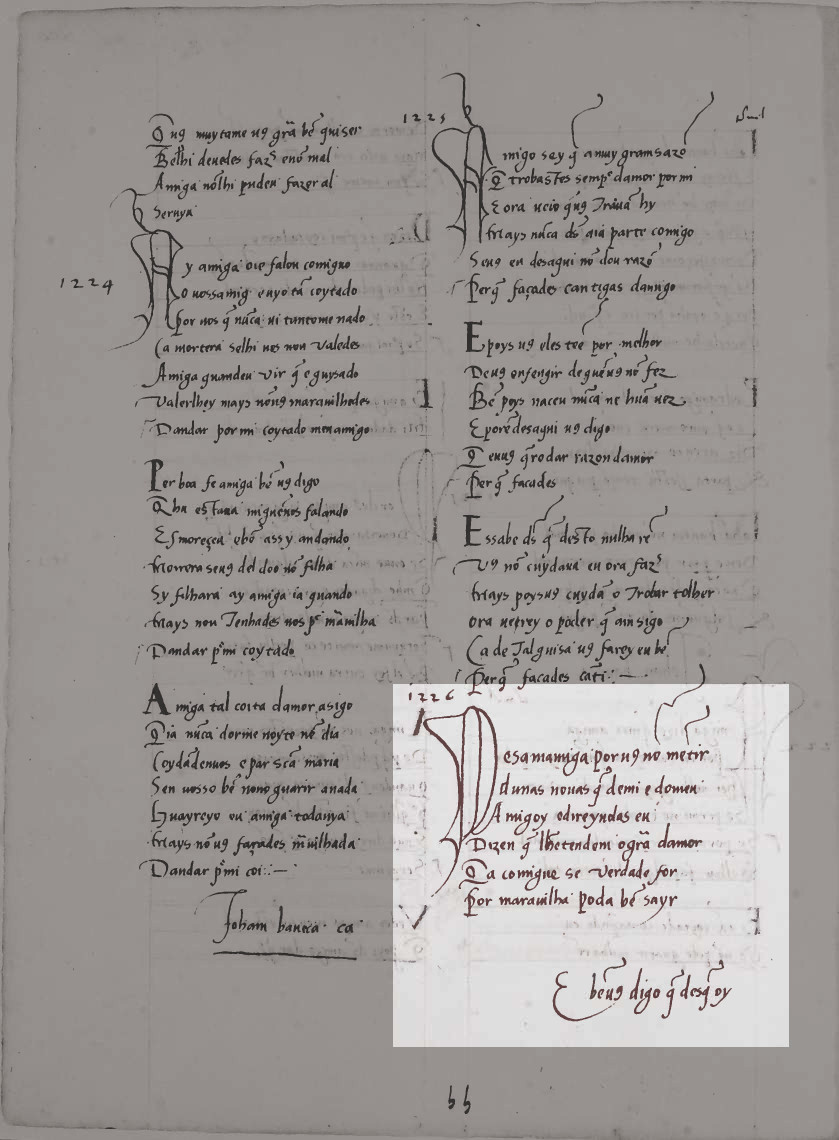 Q̄ uꝯ muytame uꝯ grã bẽ quiser
Bẽlhi deuedes faz̃ enõ mal
Amiga nõlhi puden fazer al
Seruya
1224
Ay amiga oie falou comigno
O uossamig euyo tã coytado
Por uos q̃ nũca ui tantome nado
Ca morrera selhi uos non ualedes
Amiga quandeu uir q̃ e guysado
Valerlhey mays nõuꝯ marauilhedes
Dandar por mi coytado meuamigo
Per boa fe amiga bẽ uꝯ digo
Q̄ hu estaua miguẽuos falando
Esmoreçeu ebõ assy andando
Morrera seuꝯ del doo nõ filha
Sy filhara ay amiga ia quando
Mays non Tenhades uos pͤ mãuilha
Dandar p̃mi coytado
Amiga tal coita damor asigo
Q̃ia nũca dorme noyte nẽ dia
Coydãdenuos e par Scã maria
Sen uosso bẽ nono guarir anada
Guareyreo eu amiga todauya
Mays nõ uꝯ façades m̃uilhada
Dandar p̃mi coi:—
Joham baueca ca
1225
Amigo sey q̃ a muy gram sazõ
Q̄ trobastes sempͤ damor por mi
E ora ueio q̃uꝯ Trauã hy
Mays nũca ds̃ aia parte comigo
Seuꝯ eu desaqui nõ dou razõ
Perq̃ façades cantigas damigo
E poys uꝯ eles teẽ por melhor
Deuꝯ enfengir de quẽuꝯ nõ fez
Bẽ poys naceu nũca nẽ hũa uez
E porẽ desaqui uꝯ digo
Q̄ euuꝯ q̃ro dar razon damor
Perq̃ façades
E ssabe ds̃ q̃ desto nulha rẽ
Vꝯ nõ cuydaua eu ora faz̃
Mays poysuꝯ cuydã o Trobar tolher
Ora uerrey o poder q̃ am sigo
Ca de Talguisa uꝯ farey eu bẽ
Perq̃ façades cãti:—
1226
Pesamamiga por uꝯ nõ mẽtir
Dunas nouas q̃ demi e domeu
Amigoy edireyuolas eu
Dizen q̃ lhentenden ogrã damor
Q̄a comigue se uerdade for
Por marauilha poda bẽ sayr
E bẽuꝯ digo q̃ desq̃ oy